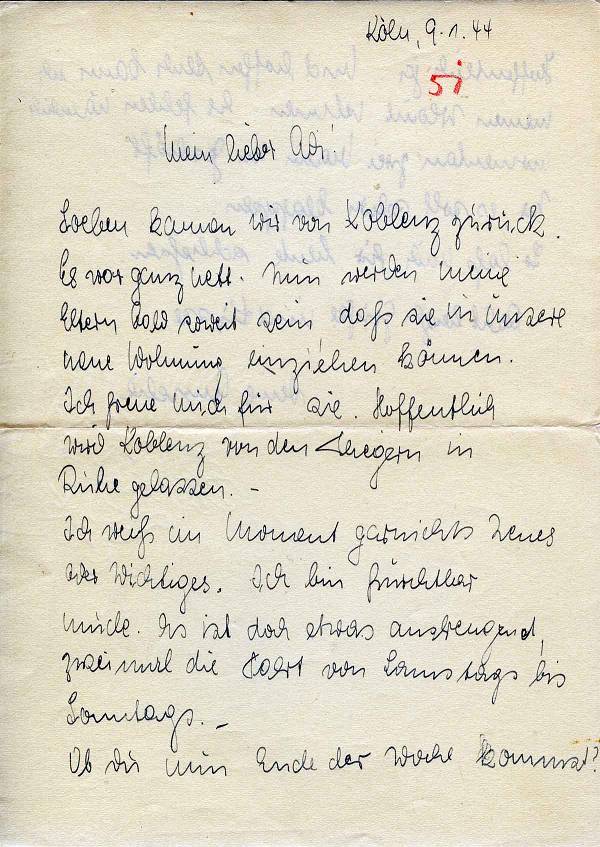 Köln, 9.1.44
51
Mein lieber Adi!
Soeben kamen wir von Koblenz zurück.
Es war ganz nett. Nun werden meine
Eltern bald soweit sein daß sie in unsere
neue Wohnung einziehen können.
Ich freue mich für sie. Hoffentlich
wird Koblenz von den Fliegern in
Ruhe gelassen. –
Ich weiß im Moment garnichts Neues
oder Wichtiges. Ich bin furchtbar
müde. Es ist doch etwas anstrengend,
zweimal die Fahrt von Samstags bis
Sonntags. –
Ob Du nun Ende der Woche kommst?